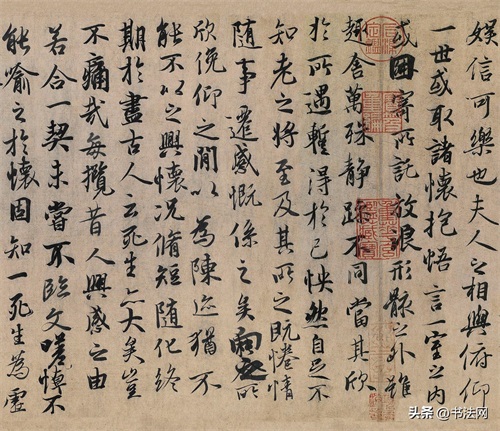 娛信可樂也夫人之相與俯仰
一世或取諸懷抱悟言一室之内
或因寄所託放浪形骸之外雖
趣舍萬殊静躁不同當其欣
於所遇蹔得於己怏然自足不
知老之將至及其所之既惓情
随事遷感慨係之矣向之所
欣俛仰之閒以為陳迹猶不
能不以之興懷况脩短随化終
期於盡古人云死生亦大矣豈
不痛哉每攬昔人興感之由
若合一契未嘗不臨文嗟悼不
能喻之於懷固知一死生為虛
头条 @书法网